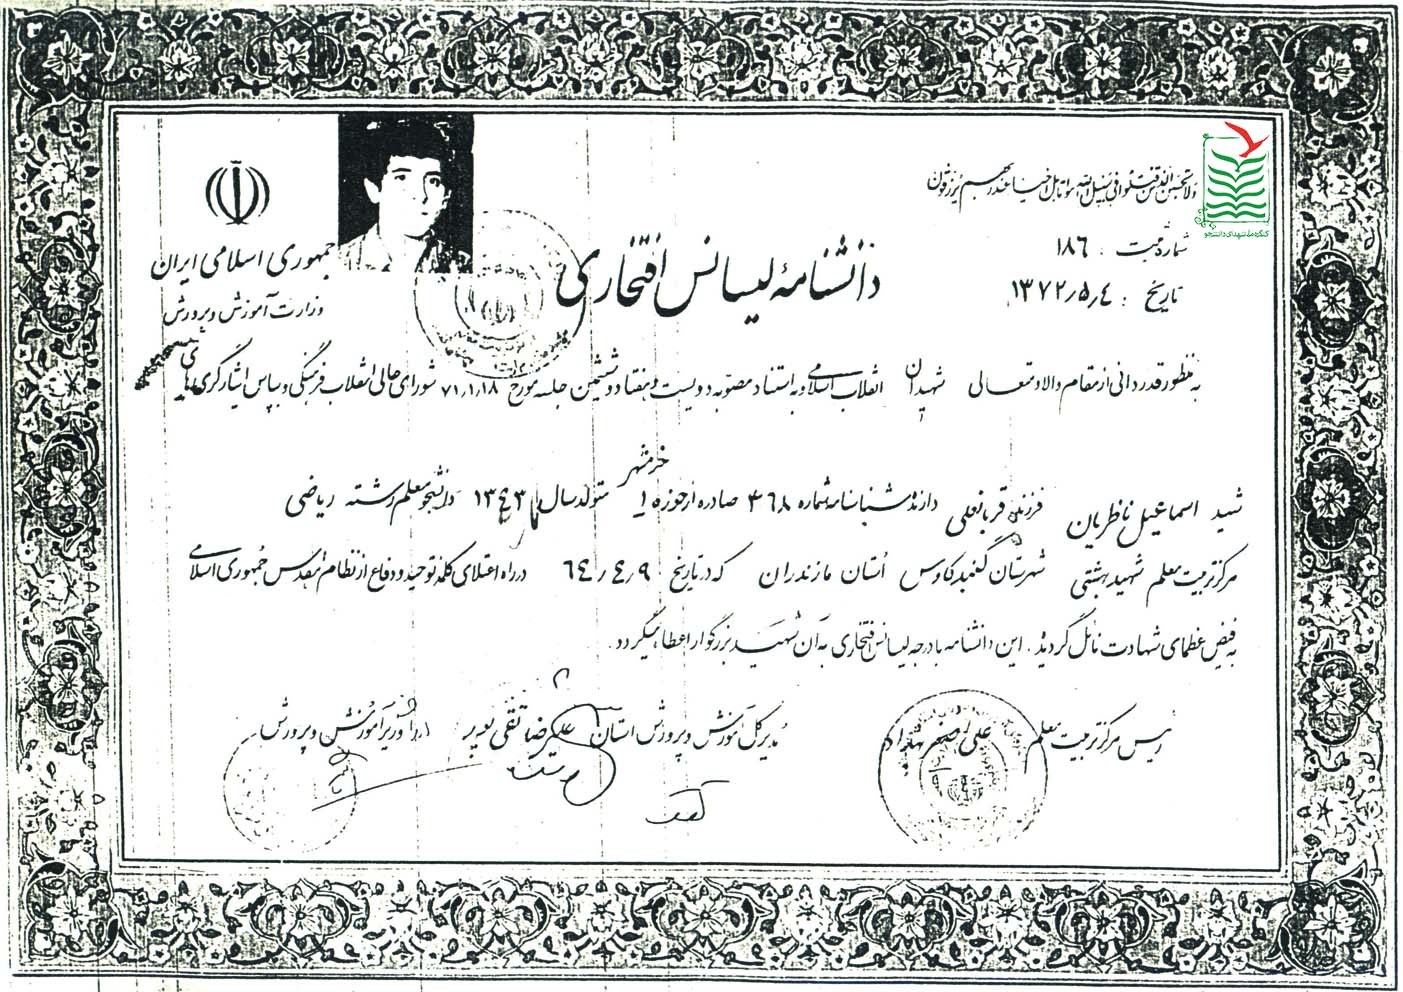 ولا تحسبن الذین قتلوا فی سبیل الله امواتا بل احیاء عند ربهم یرزقون
کنگره ملی شهدای دانشجو
جمهوری اسلامی ایران
وزارت آموزش و پرورش
شماره ثبت : ۱۸۶
تاریخ : ۱۳۷۲٫۵٫۴
دانشنامهٔ لیسانس افتخاری
به منظور قدردانی از مقام والا و متعالی شهیدان انقلاب اسلامی و به استناد مصوبه دویست و هفتاد و ششمین جلسه مورخ ۷۱٫۱٫۱۸ شورای عالی انقلاب فرهنگی و بپاس ایثارگری های
شهید اسماعیل ناظریان فرزند قربانعلی دارنده شناسنامه شماره ۳۶۸ صادره از حوزه ۱ خرمشهر متولد سال ۱۳۴۳ دانشجو معلم رشته ریاضی
مرکز تربیت معلم شهید بهشتی شهرستان گنبدکاوس استان مازندران که در تاریخ ۶۴٫۴٫۹ در راه اعتلای کلمه توحید و دفاع از نظام مقدس جمهوری اسلامی
به فیض عظمای شهادت نائل گردید . این دانشنامه با درجه لیسانس افتخاری به آن شهید بزرگوار اعطا میگردد .
رئیس مرکز تربیت معلم علی اصغر بهداد
مدیر کل آموزش و پرورش استان علیرضا تقی پور
وزیر آموزش و پرورش